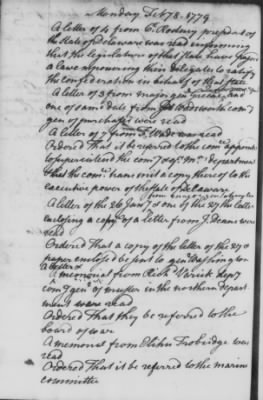 Monday Feb 8. 1779
A letter of 4 from C. Rodney president of
the State of delaware was read informing
that the legislature of that state have passed
a Law authorising their delegates to ratify
the confederation on behalf of that state
A letter of 3 from major gen Greene and
one of same date from J Wadsworth comy
gen of purchases was read
A letter of 7 from F. Wade was read
Ordered That it be referred to the comee appointed
to superintend the comy & qr mr departments
& that the comee transmit a copy thereof to the
executive power of the state of delaware
A letter of the 26 Jany & one of the 27 the latter
enclosing a copy of a letter from J. Deane were
read
Ordered That a copy of the letter of the 27 &
paper enclosed be sent to gen Washington
A letter &
A memorial from Rich Varick depy
comy gen of muster in the northern depart
ment were read
Ordered That they be referred to the
board of war
A memorial from John Trobridge was
read
Ordered That it be referred to the marine
committee